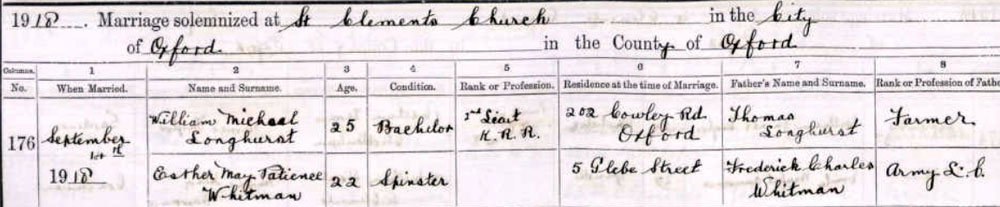 1918. Marriage solemnized at St Clements Church in the City
of Oxford in the County of Oxford
Columns. 1 2 3 4 5 6 7 8
No. When Married. Name and Surname. Age. Condition. Rank or Profession. Residence at the time of Marriage. Father's Name and Surname. Rank or Profession of Fathe
176 September 1918 William Micheal Longhurst 25 Bachelor 2nd Lieut K. R. R. 202 Cowley Rd Oxford Thomas Longhurst Farmer
Esther May Patience Whitman 22 Spinster 5 Glebe Street Frederick Charles Whitman Army